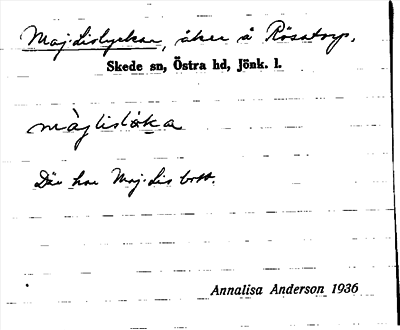 Maj-Lislyckan, åker å Rösatorp,
Skede sn, Östra hd, Jönk. l.
Där har Maj-Lis bott.
Annalisa Anderson 1936